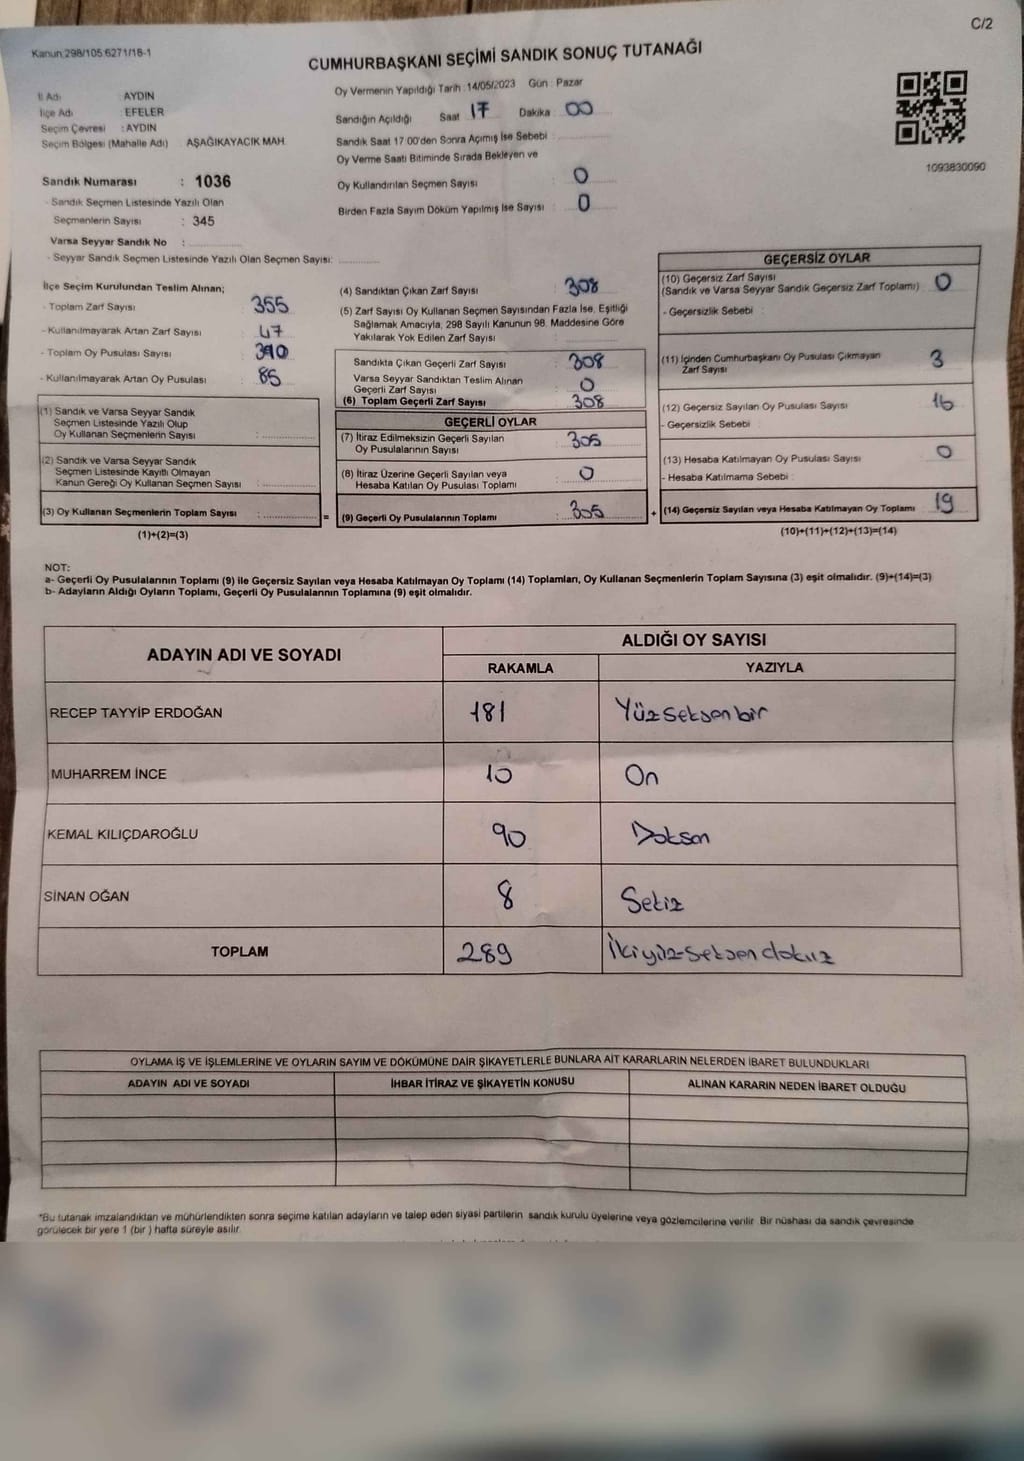 C/2
Kanun 298/105 6271/16-1
CUMHURBAŞKANI SEÇİMİ SANDIK SONUÇ TUTANAĞI
İl Adı : AYDIN
İlçe Adı : EFELER
Seçim Çevresi : AYDIN
Seçim Bölgesi (Mahalle Adı) AŞAĞIKAYACIK MAH.
Sandık Numarası : 1036
- Sandık Seçmen Listesinde Yazılı Olan
Seçmenlerin Sayısı : 345
Varsa Seyyar Sandık No :
- Seyyar Sandık Seçmen Listesinde Yazılı Olan Seçmen Sayısı:
Oy Vermenin Yapıldığı Tarih : 14/05/2023 Gün : Pazar
Sandığın Açıldığı Saat 17 Dakika 00
Sandık Saat 17:00'den Sonra Açımış İse Sebebi :
Oy Verme Saati Bitiminde Sırada Bekleyen ve
Oy Kullandırılan Seçmen Sayısı : 0
Birden Fazla Sayım Döküm Yapılmış İse Sayısı : 0
1093830090
İlçe Seçim Kurulundan Teslim Alınan;
- Toplam Zarf Sayısı : 355
- Kullanılmayarak Artan Zarf Sayısı : 47
- Toplam Oy Pusulası Sayısı : 390
- Kullanılmayarak Artan Oy Pusulası : 85
(1) Sandık ve Varsa Seyyar Sandık
Seçmen Listesinde Yazılı Olup
Oy Kullanan Seçmenlerin Sayısı :
(2) Sandık ve Varsa Seyyar Sandık
Seçmen Listesinde Kayıtlı Olmayan
Kanun Gereği Oy Kullanan Seçmen Sayısı :
(3) Oy Kullanan Seçmenlerin Toplam Sayısı :
(1)+(2)=(3)
(4) Sandıktan Çıkan Zarf Sayısı : 308
(5) Zarf Sayısı Oy Kullanan Seçmen Sayısından Fazla İse, Eşitliği
Sağlamak Amacıyla, 298 Sayılı Kanunun 98. Maddesine Göre
Yakılarak Yok Edilen Zarf Sayısı :
Sandıkta Çıkan Geçerli Zarf Sayısı : 308
Varsa Seyyar Sandıktan Teslim Alınan
Geçerli Zarf Sayısı : 0
(6) Toplam Geçerli Zarf Sayısı : 308
GEÇERLİ OYLAR
(7) İtiraz Edilmeksizin Geçerli Sayılan
Oy Pusulalarının Sayısı : 305
(8) İtiraz Üzerine Geçerli Sayılan veya
Hesaba Katılan Oy Pusulası Toplamı : 0
= (9) Geçerli Oy Pusulalarının Toplamı : 305
GEÇERSİZ OYLAR
(10) Geçersiz Zarf Sayısı
(Sandık ve Varsa Seyyar Sandık Geçersiz Zarf Toplamı) : 0
- Geçersizlik Sebebi :
(11) İçinden Cumhurbaşkanı Oy Pusulası Çıkmayan
Zarf Sayısı 3
(12) Geçersiz Sayılan Oy Pusulası Sayısı : 16
- Geçersizlik Sebebi
(13) Hesaba Katılmayan Oy Pusulası Sayısı : 0
- Hesaba Katılmama Sebebi :
+ (14) Geçersiz Sayılan veya Hesaba Katılmayan Oy Toplamı 19
(10)+(11)+(12)+(13)=(14)
NOT:
a- Geçerli Oy Pusulalarının Toplamı (9) ile Geçersiz Sayılan veya Hesaba Katılmayan Oy Toplamı (14) Toplamları, Oy Kullanan Seçmenlerin Toplam Sayısına (3) eşit olmalıdır. (9)+(14)=(3)
b- Adayların Aldığı Oyların Toplamı, Geçerli Oy Pusulalarının Toplamına (9) eşit olmalıdır.
ADAYIN ADI VE SOYADI ALDIĞI OY SAYISI
RAKAMLA YAZIYLA
RECEP TAYYİP ERDOĞAN 181 Yüzseksenbir
MUHARREM İNCE 10 On
KEMAL KILIÇDAROĞLU 90 Doksan
SİNAN OĞAN 8 Sekiz
TOPLAM 289 İkiyüz-seksendokuz
OYLAMA İŞ VE İŞLEMLERİNE VE OYLARIN SAYIM VE DÖKÜMÜNE DAİR ŞİKAYETLERLE BUNLARA AİT KARARLARIN NELERDEN İBARET BULUNDUKLARI
ADAYIN ADI VE SOYADI İHBAR İTİRAZ VE ŞİKAYETİN KONUSU ALINAN KARARIN NEDEN İBARET OLDUĞU
*Bu tutanak imzalandıktan ve mühürlendikten sonra seçime katılan adayların ve talep eden siyasi partilerin sandık kurulu üyelerine veya gözlemcilerine verilir. Bir nüshası da sandık çevresinde
görülecek bir yere 1 (bir) hafta süreyle asılır.